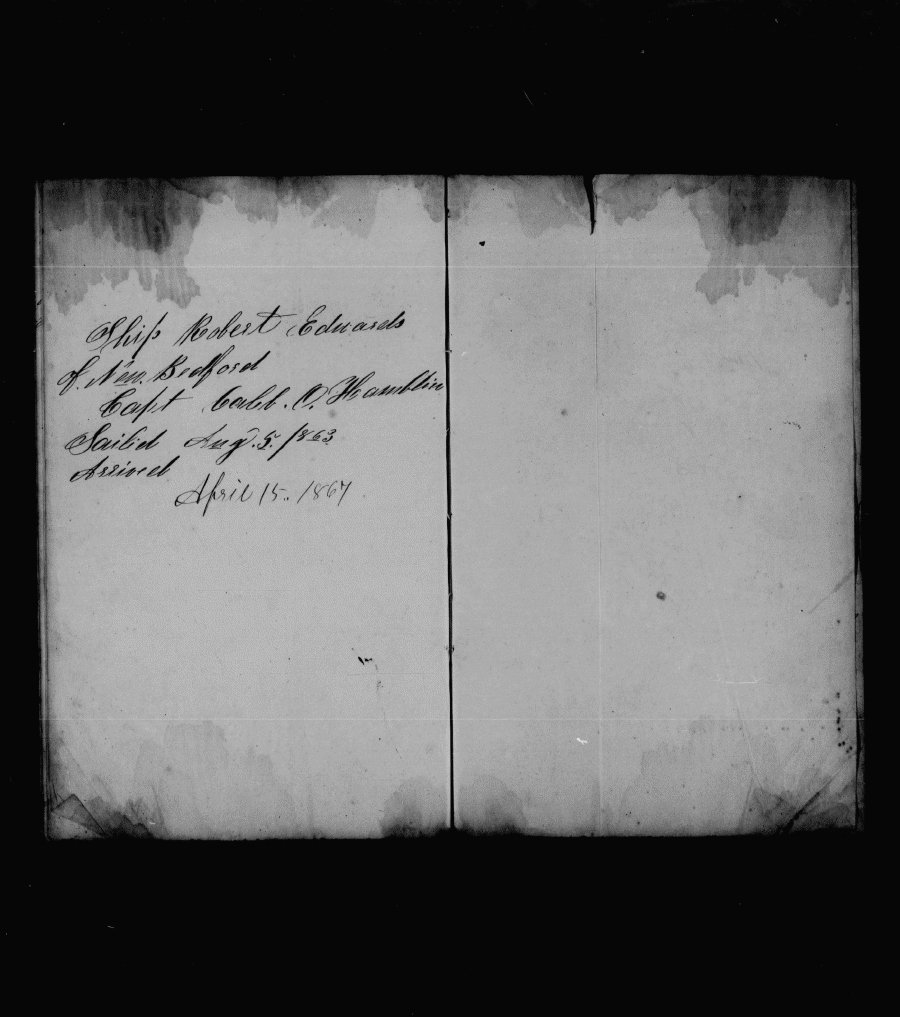 Ship Robert Edwards
of. New. Bedford
Capt Calib. O. Hamblin
Sailed Aug. 5. 1863
Arrived
April 15.. 1867